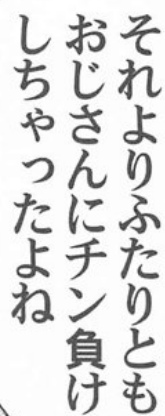 それよりふたりとも
おじさんにチン負け
しちゃったよね